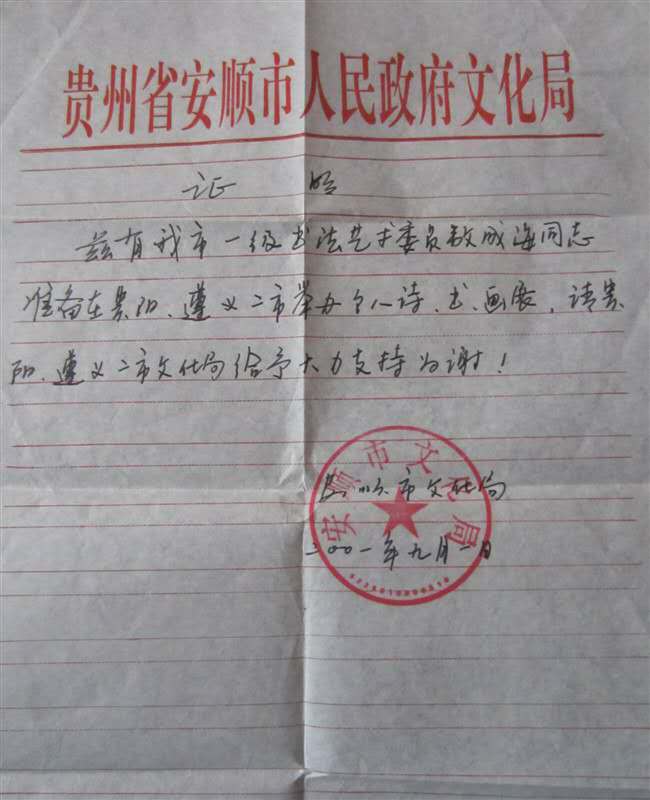 贵州省安顺市人民政府文化局
证 明
兹有我市一级书法艺术委员敖成海同志
准备在贵阳、遵义二市举办个人诗、书、画展，请贵
阳、遵义二市文化局给予大力支持为谢！
安顺市文化局
安顺市文化局
二00一年九月一日